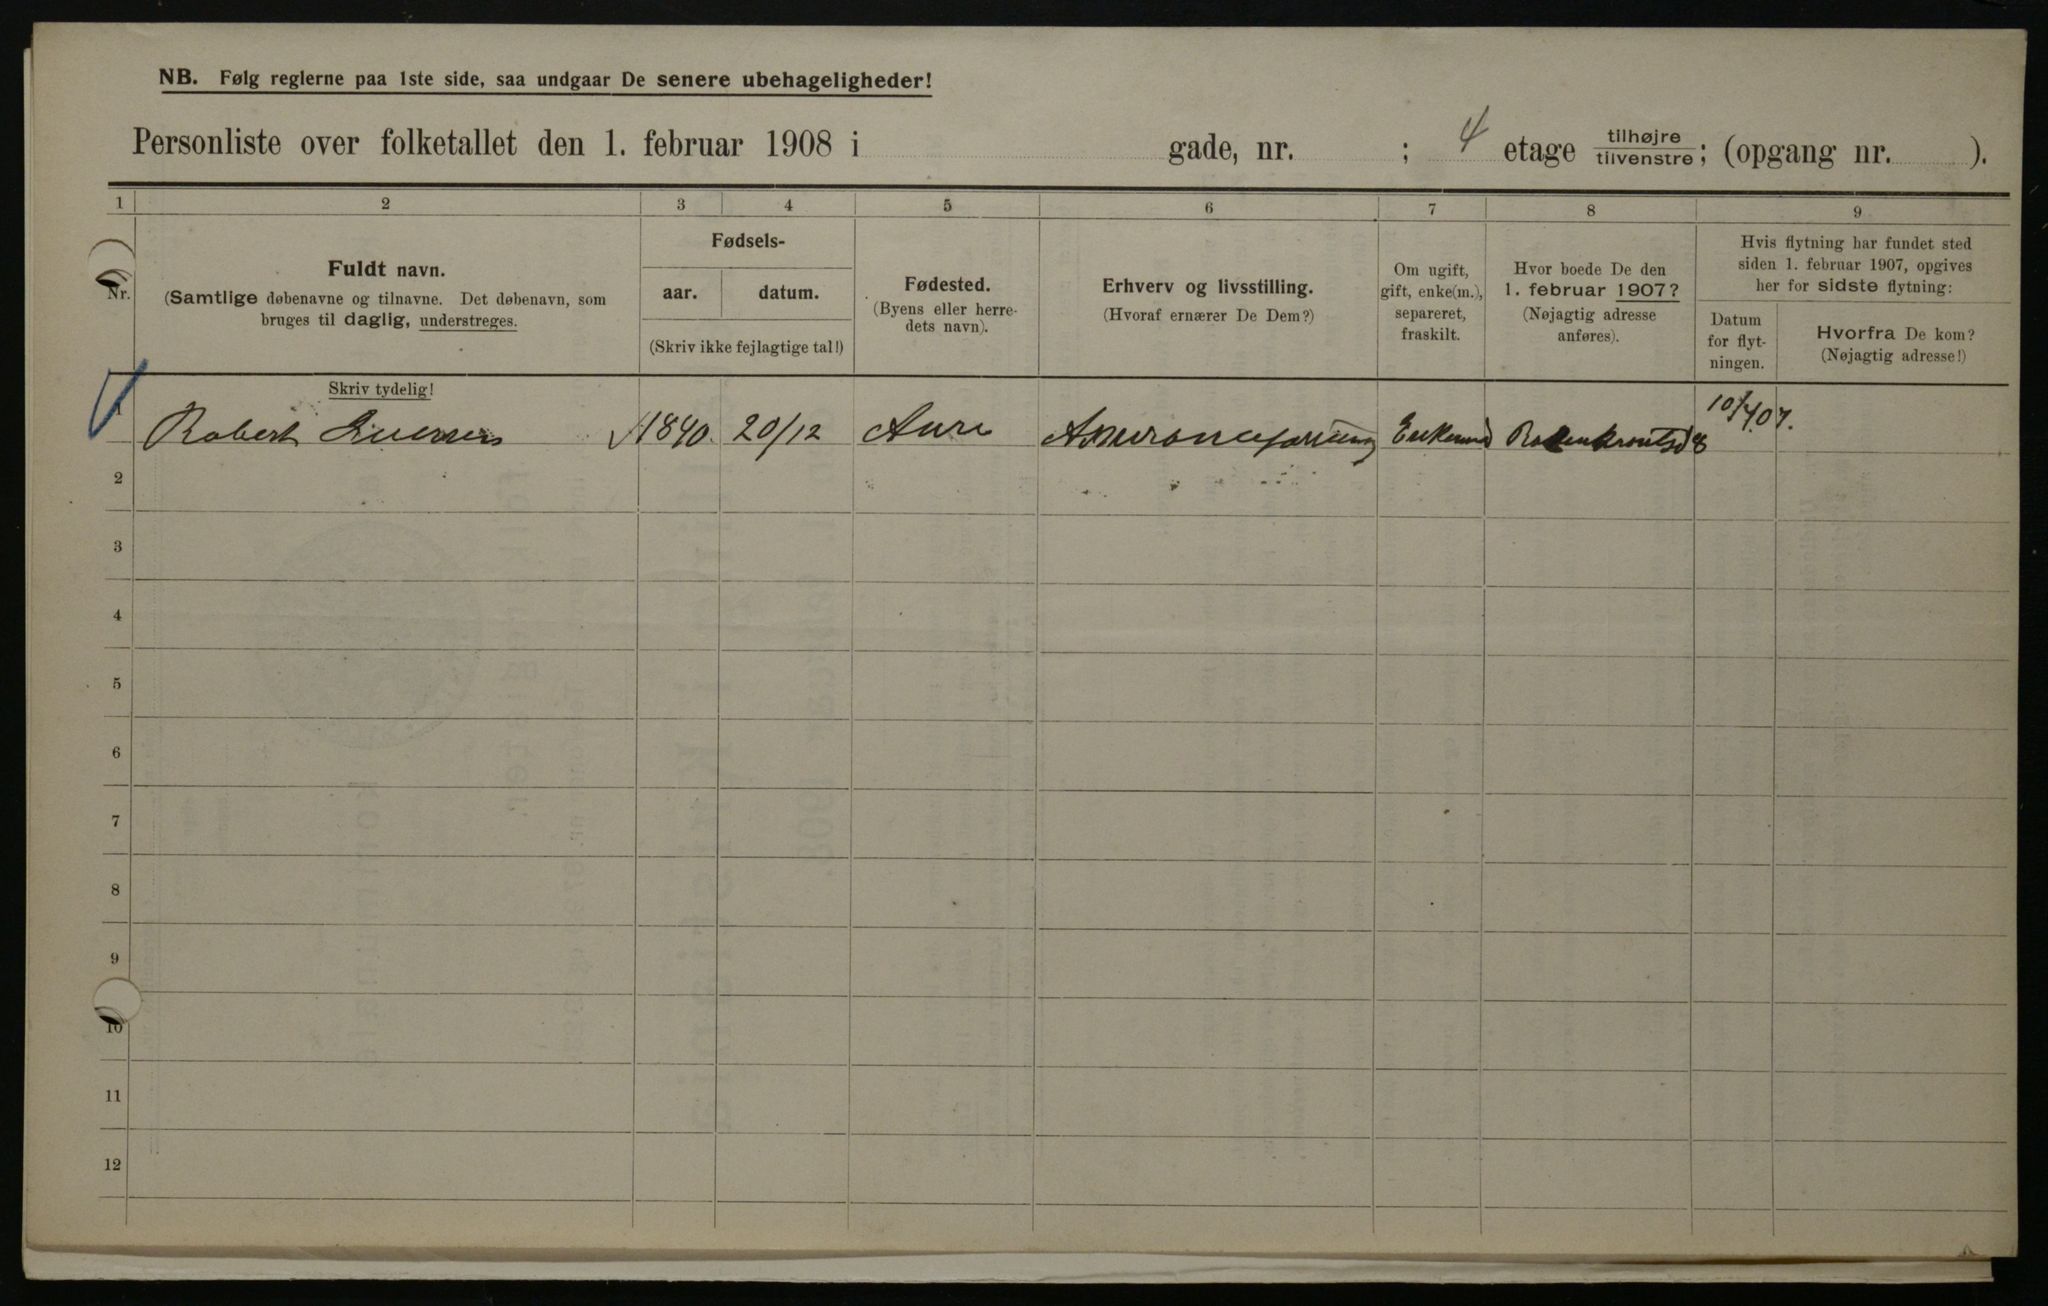 NB. Følg reglerne paa 1ste side, saa undgaar De senere ubehageligheder!
Personliste over folketallet den 1. februar 1908 i gade, nr. ; 4 etage tilhøjre/tilvenstre; (opgang nr. ).
1 2 3 4 5 6 7 8 9
Nr.
Fuldt navn.
(Samtlige døbenavne og tilnavne. Det døbenavn, som
bruges til daglig, understreges.
Skriv tydelig!
Fødsels-
aar. datum.
(Skriv ikke fejlagtige tal!)
Fødested.
(Byens eller herre-
dets navn).
Erhverv og livsstilling.
(Hvoraf ernærer De Dem?)
Om ugift,
gift, enke(m.),
separeret,
fraskilt.
Hvor boede De den
1. februar 1907?
(Nøjagtig adresse
anføres).
Hvis flytning har fundet sted
siden 1. februar 1907, opgives
her for sidste flytning:
Datum
for flyt-
ningen.
Hvorfra De kom?
(Nøjagtig adresse!)
1 Robert 1840. 20/12 Aure 10/4 07.
2
3
4
5
6
7
8
9
10
11
12